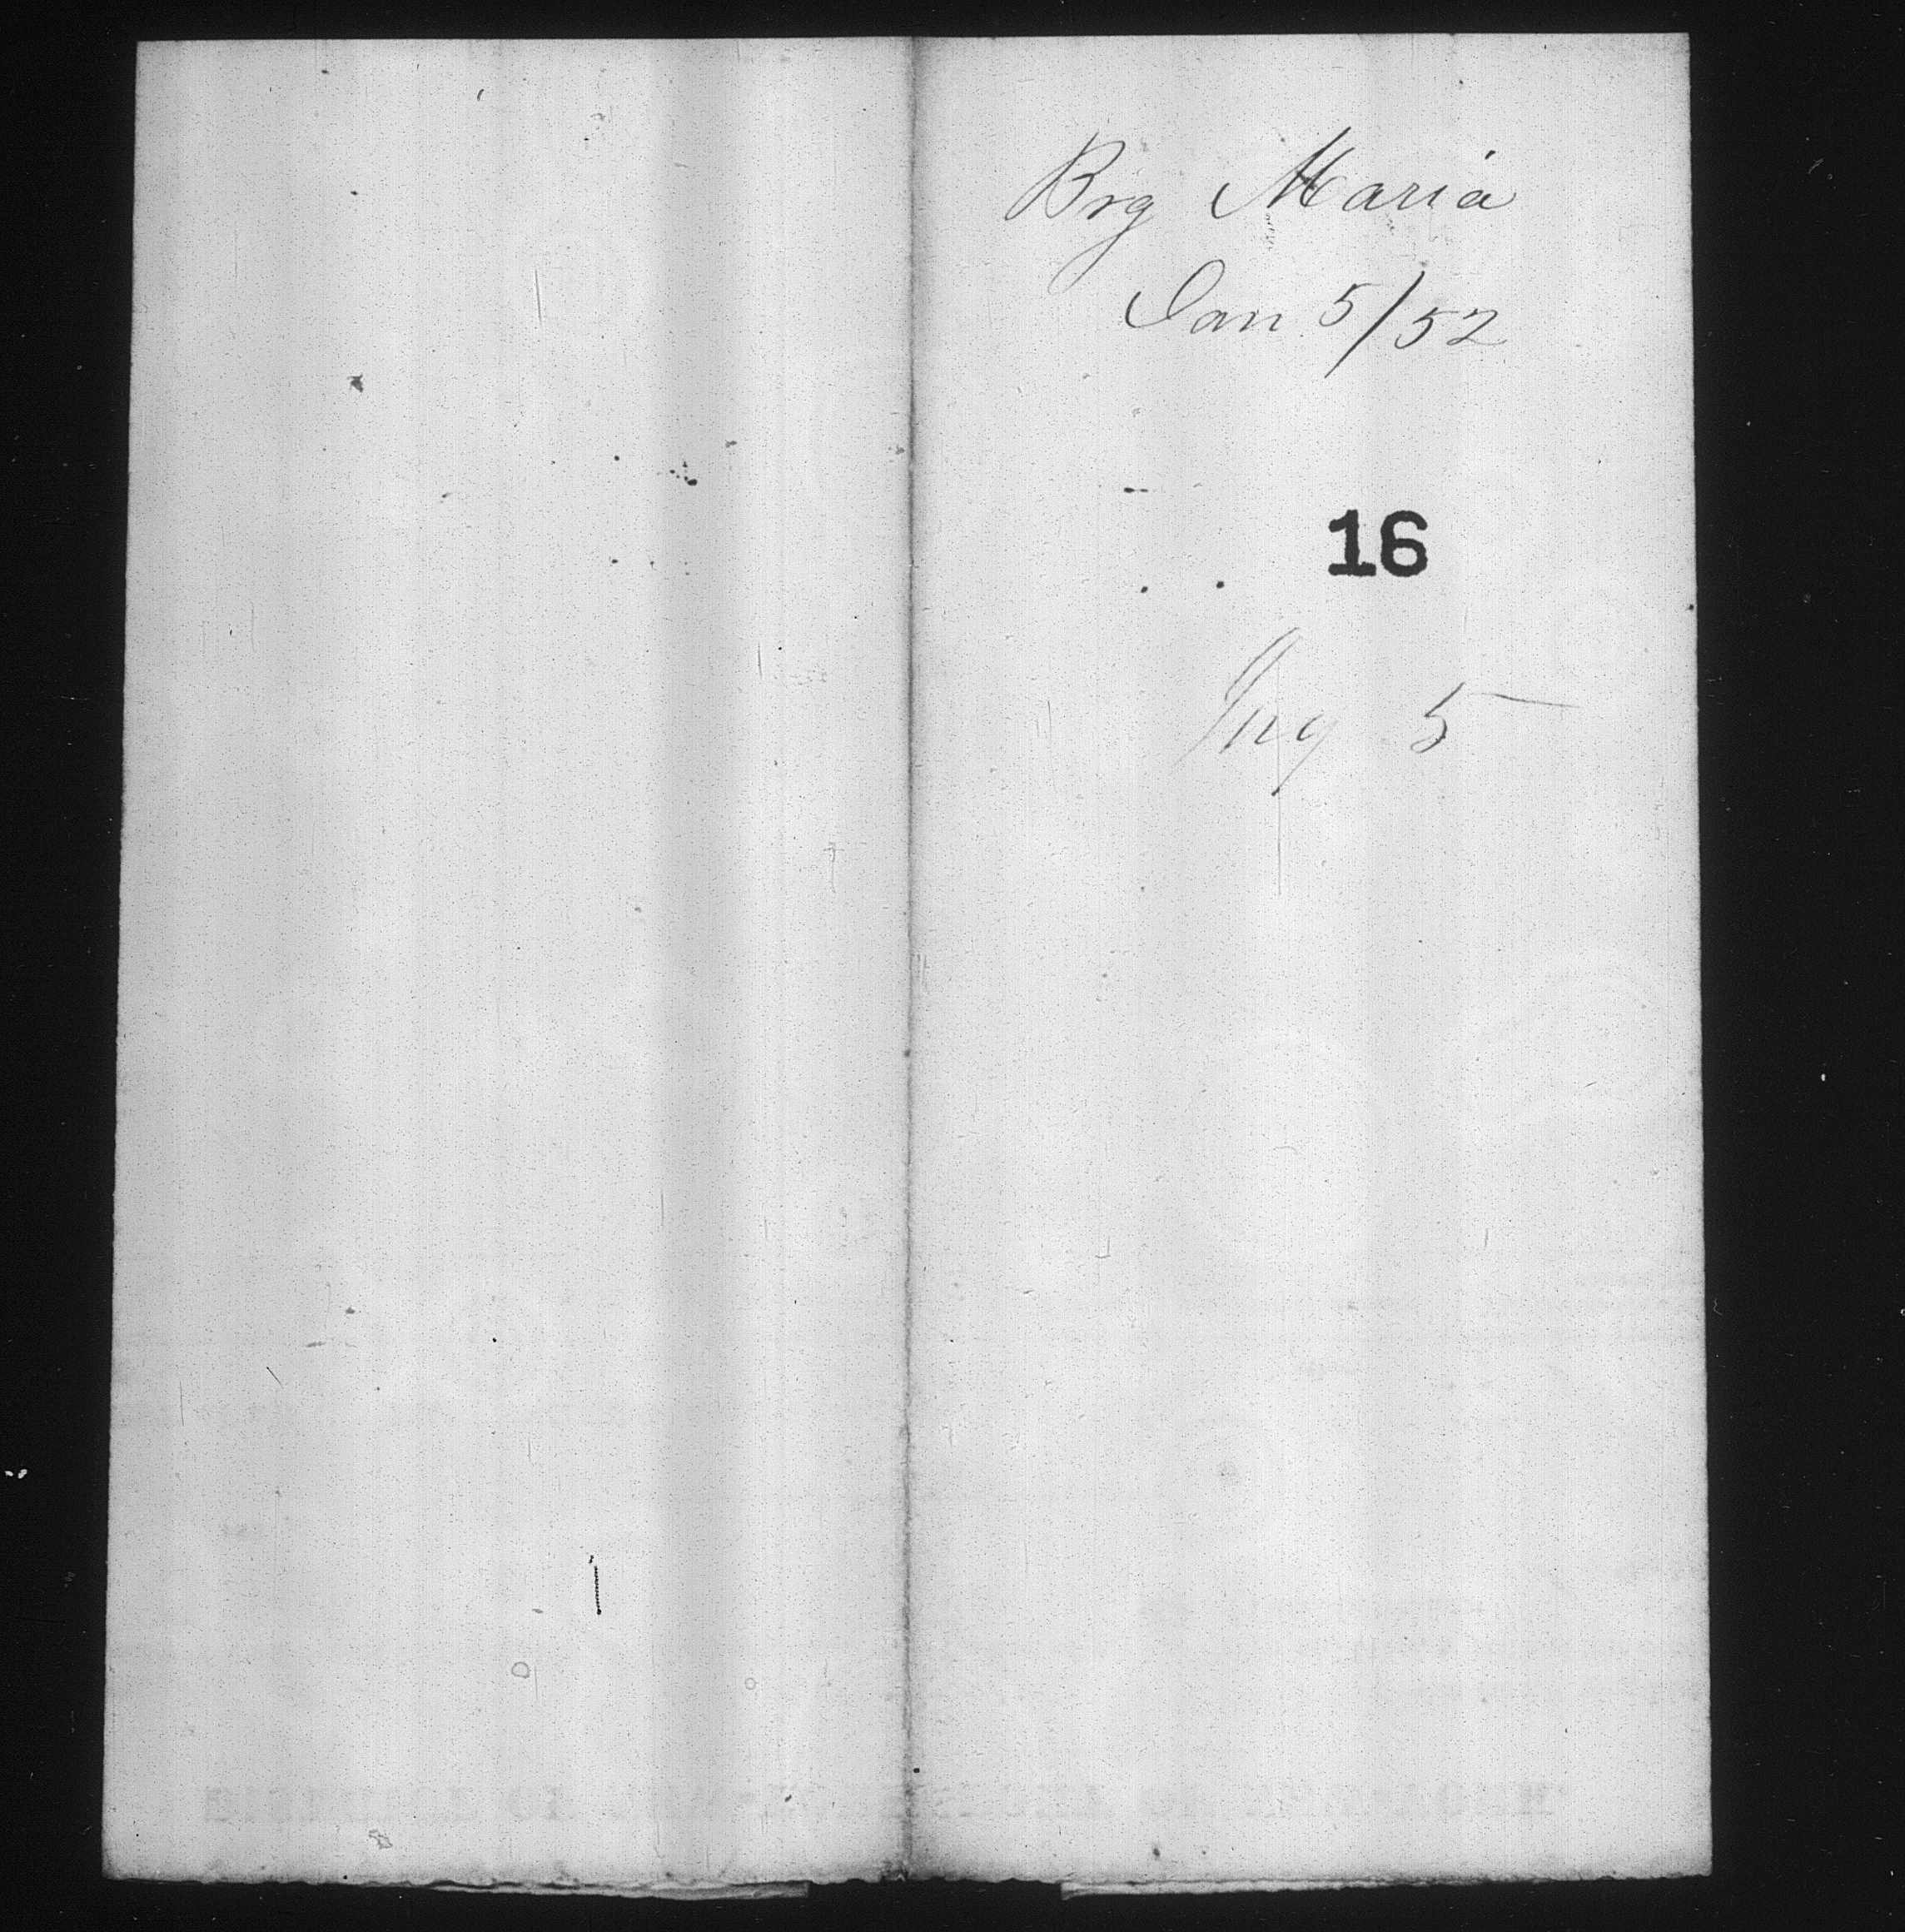 Brg Maria
Jan 5/52
16
5